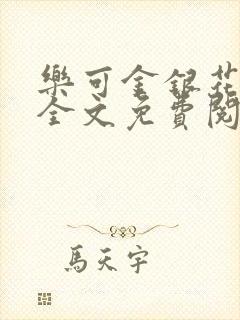 樂可金銀花
全文免費閱
馬天宇